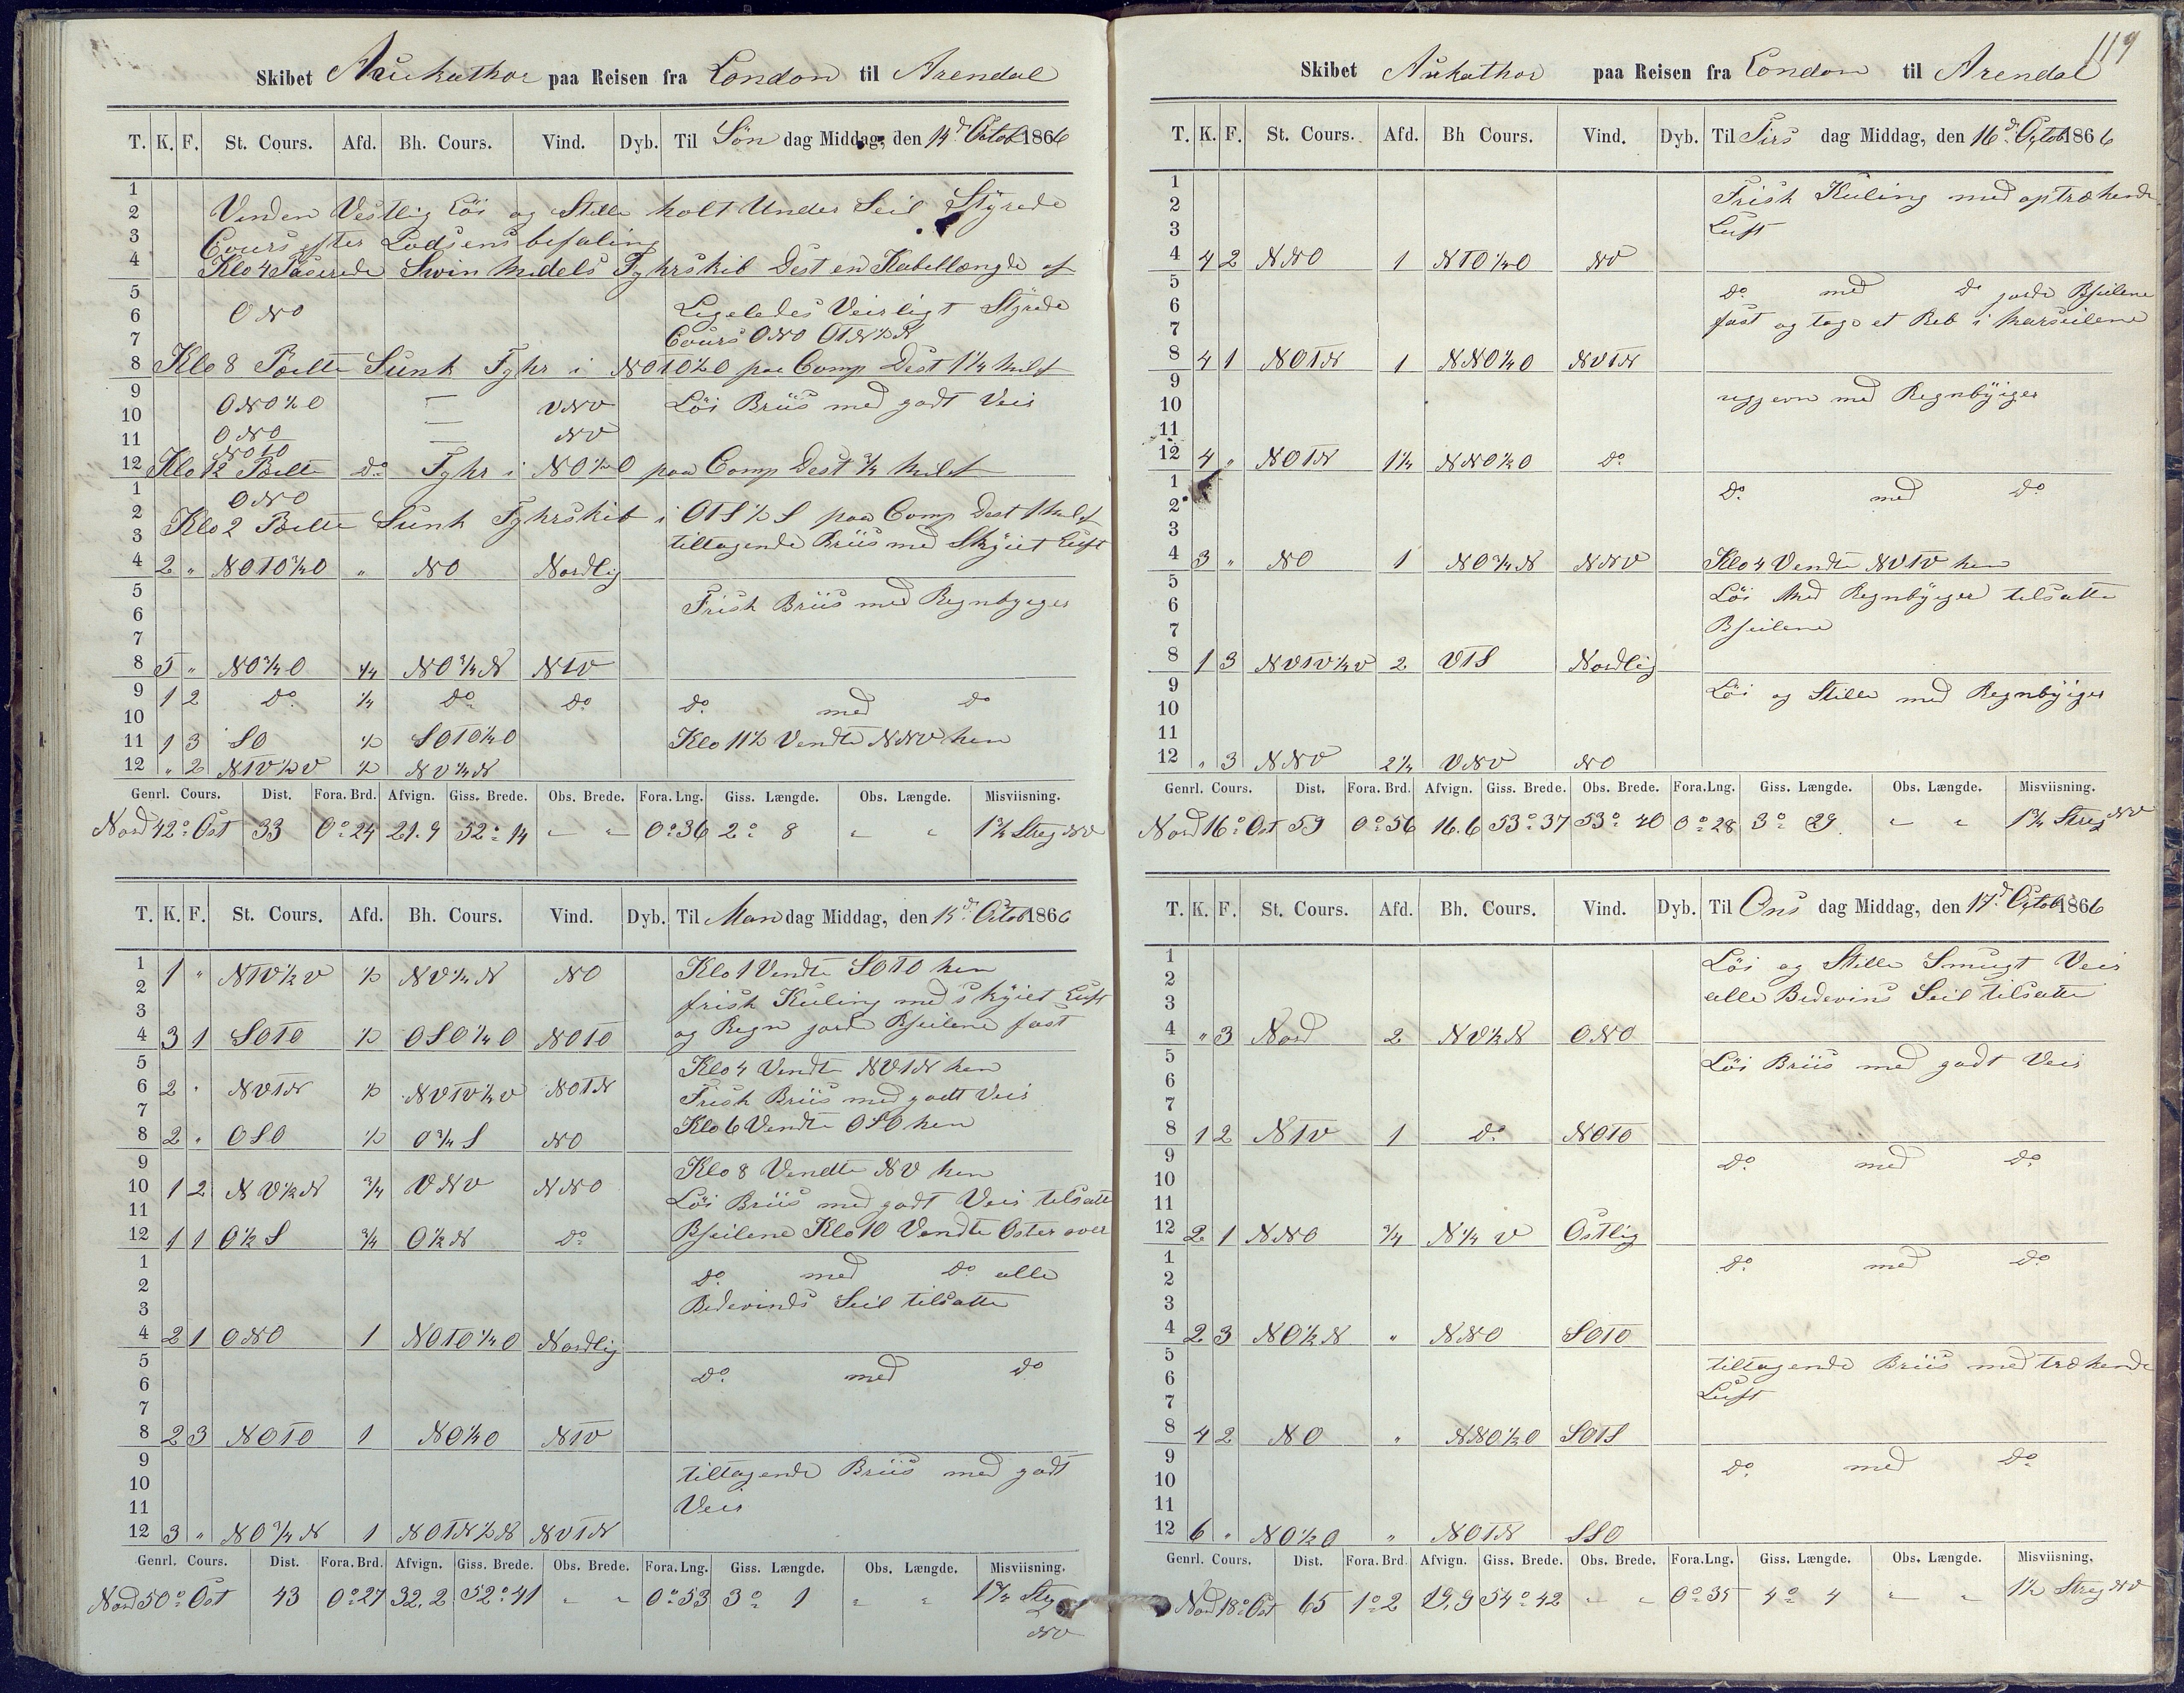 Skibet Aukathor paa Reisen fra London til Arendal
T. K. F. St. Cours. Afd. Bh. Cours. Vind. Dyb. Til Søn dag Middag, den 14d. Octob 1866
1
2 Vinden Vestlig Löi og Stille holt Under Seil Styrede
3 Cours efter Lodsens befaling
4 Klo 4 Paserede Swin Midels Fyhrskib Dest en Kabellængde af
5 Ligeledes Veirligt Styrede
6 ONO
7 Cours ONO OTN½N
8 Klo 8 Peilte Sunk Fyhr i NOTO½O paa Comp Dest 1¼ Mil af
9 ONO½O — VNV Löi Briis med godt Veir
10
11 ONO — NV
NOTO
12 Klo 12 Peilte do Fyhr i NO½O paa Comp Dest ¾ Mil af
1 ONO
2 Klo 2 Peilte Sunk Fyhrskib i OTS½S paa Comp Dest 1 Mil af
3 tiltagende Briis med Skyiet Luft
4 2 " NOTO¾O " NO Nordlig
5 Frisk Briis med Regnbyiger
6
7
8 5 " NO¾O ¼ NO¾N NTV
9 1 2 do ¼ do do do med do
10
11 1 3 SO ½ SOTO¼O Klo 11½ Vendte NNV hen
12 " 2 NTV½V ½ NV¼N
Genrl. Cours. Dist. Fora. Brd. Afvign. Giss. Brede. Obs. Brede. Fora. Lng. Giss. Længde. Obs. Længde. Misviisning.
Nord 42° Ost 33 0° 24 21.9 52° 14 " " 0° 36 2° 8 " " 1¾ Streg NV
T. K. F. St. Cours. Afd. Bh. Cours. Vind. Dyb. Til Man dag Middag, den 15d. Octob 1866
1 1 " NTV½V ½ NV¼N NO Klo 1 Vendte SOTO hen
2 frisk Kuling med skyiet Luft
3
4 3 1 SOTO ½ OSO¼O NOTO og Regn jorde Bseilene fast
5 Klo 4 Vendte NVTN hen
6 2 " NVTN ½ NVTV¼V NOTN Frisk Briis med godt Veir
7
8 2 " OSO ½ O¾S NO Klo 6 Vendte OSO hen
9 Klo 8 Vendte NV hen
10 1 2 NV½N ¾ VNV NNO
11 Löi Briis med godt Veir tilsatte
12 1 1 O½S ¾ O½N do Bseilene Klo 10 Vendte Oster over
1 do med do alle
2 Bedevinds Seil tilsatte
3
4 2 1 ONO 1 NOTO¼O Nordlig
5 do med do
6
7
8 2 3 NOTO 1 NO¼O NTV
9 tiltagende Briis med godt
10
11 Veir
12 3 " NO¾N 1 NOTN½N NVTN
Genrl. Cours. Dist. Fora. Brd. Afvign. Giss. Brede. Obs. Brede. Fora. Lng. Giss. Længde. Obs. Længde. Misviisning.
Nord 50° Ost 43 0° 27 32.2 52° 41 " " 0° 53 3° 1 " " 1¾ Streg
NV
119
Skibet Aukathor paa Reisen fra London til Arendal
T. K. F. St. Cours. Afd. Bh Cours. Vind. Dyb. Til Tirs dag Middag, den 16d. Octob 1866
1 Frisk Kuling med optrækende
2 Luft
3
4 4 2 NNO 1 NTO¼O NV
5 do med do jorde Bseilene
6 fast og toge et Reb i Marseilene
7
8 4 1 NOTN 1 NNO¼O NVTN
9 ugjevn med Regnbyiger
10
11
12 4 " NOTN 1¼ NNO½O do
1 do med do
2
3
4 3 " NO 1 NO¾N NNV Klo 4 Vendte NVTV hen
5 Löi Med Regnbyiger tilsatte
6
7 Bseilene
8 1 3 NVTV¼V 2 VTS Nordlig
9 Löi og Stille med Regnbyiger
10
11
12 " 3 NNV 2¼ VNV NO
Genrl. Cours. Dist. Fora. Brd. Afvign. Giss. Brede. Obs. Brede. Fora. Lng. Giss. Længde. Obs. Længde. Misviisning.
Nord 16° Ost 59 0° 56 16.6 53° 37 53° 40 0° 28 3° 29 " " 1¾ Streg NV
T. K. F. St. Cours. Afd. Bh. Cours. Vind. Dyb. Til Ons dag Middag, den 17d. Octob 1866
1 Löi og Stille Smugt Veir
2 alle Bedevins Seil tilsatte
3
4 " 3 Nord 2 NV½N ONO
5 Löi Briis med godt Veir
6
7
8 1 2 NTV 1 do NOTO
9 do med do
10
11
12 2 1 NNO ¾ N¼V Ostlig
1 do med do
2
3
4 2 3 NO½N " NNO SOTO
5 tiltagende Briis med trækende
6 Luft
7
8 4 2 NO " NNO½O SOTS
9 do med do
10
11
12 6 " NO½O " NOTN SSO
Genrl. Cours. Dist. Fora. Brd. Afvign. Giss. Brede. Obs. Brede. Fora. Lng. Giss. Længde. Obs. Længde. Misviisning.
Nord 18° Ost 65 1° 2 19.9 54° 42 " " 0° 35 4° 4 " " 1½ Streg NV